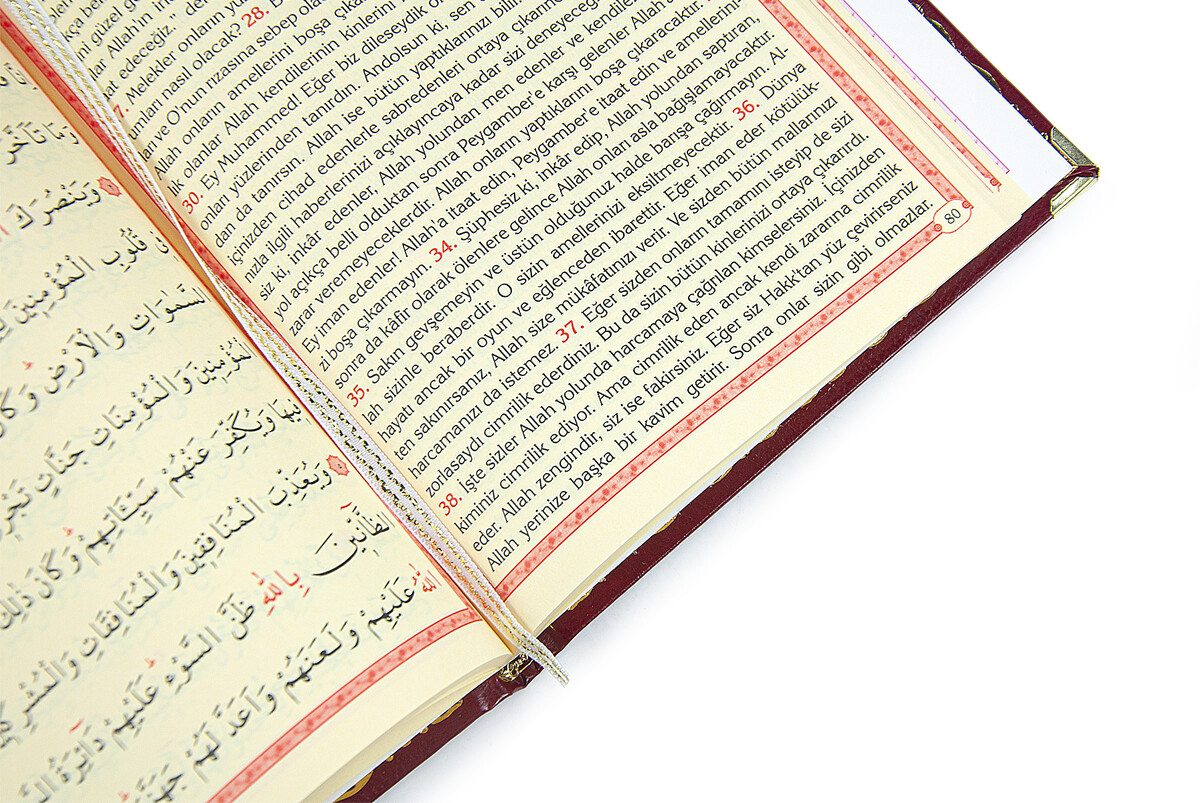 güzel
Allah'ın
edeceğiz.,,
Melekler onların
nasıl olacak? 28.
ve O'nun rızasına sebep
Allah onların amellerini boşa
lik olanlar Allah kendilerinin kinlerini
30. Ey Muhammed! Eğer biz dileseydik
onları yüzlerinden tanırdın. Andolsun ki, sen
dan da tanırsın. Allah ise bütün yaptıklarınızı
içinizden cihad edenlerle sabredenleri ortaya
nızla ilgili haberlerinizi açıklayıncaya kadar sizi
siz ki, inkâr edenler, Allah yolundan men edenler ve
yol açıkça belli olduktan sonra Peygamber'e karşı gelenler
zarar veremeyeceklerdir. Allah onların yaptıklarını boşa çıkaracaktır.
Ey iman edenler! Allah'a itaat edin, Peygamber'e itaat edin ve amellerini-
zi boşa çıkarmayın. 34. Şüphesiz ki, inkâr edip, Allah yolundan saptıran,
sonra da kâfir olarak ölenlere gelince Allah onları asla bağışlamayacaktır.
35. Sakın gevşemeyin ve üstün olduğunuz halde barışa çağırmayın. Al-
lah sizinle beraberdir. O sizin amellerinizi eksiltmeyecektir. 36. Dünya
hayatı ancak bir oyun ve eğlenceden ibarettir. Eğer iman eder kötülük-
ten sakınırsanız, Allah size mükâfatınızı verir. Ve sizden bütün mallarınızı
harcamanızı da istemez. 37. Eğer sizden onların tamamını isteyip de sizi
zorlasaydı cimrilik ederdiniz. Bu da sizin bütün kinlerinizi ortaya çıkarırdı.
38. İşte sizler Allah yolunda harcamaya çağrılan kimselersiniz. İçinizden
kiminiz cimrilik ediyor. Ama cimrilik eden ancak kendi zararına cimrilik
eder. Allah zengindir, siz ise fakirsiniz. Eğer siz Hakk'tan yüz çevirirseniz
Allah yerinize başka bir kavim getirir. Sonra onlar sizin gibi olmazlar.
80
تَأَخَّرَ
وَيَنْصُرَكَ
قُلُوبِ الْمُؤْمِنِينَ
السَّمٰوَاتِ وَالْاَرْضِ
الْمُؤْمِنِينَ وَالْمُؤْمِنَاتِ جَنَّاتٍ
وَيُكَفِّرَ عَنْهُمْ سَيِّئَاتِهِمْ وَكَانَ ذٰلِكَ
وَيُعَذِّبَ الْمُنَافِقِينَ وَالْمُنَافِقَاتِ
الظَّٓانِّينَ بِاللّٰهِ ظَنَّ السَّوْءِ عَلَيْهِمْ دَٓائِرَةُ
اللّٰهُ عَلَيْهِمْ وَلَعَنَهُمْ وَاَعَدَّ لَهُمْ